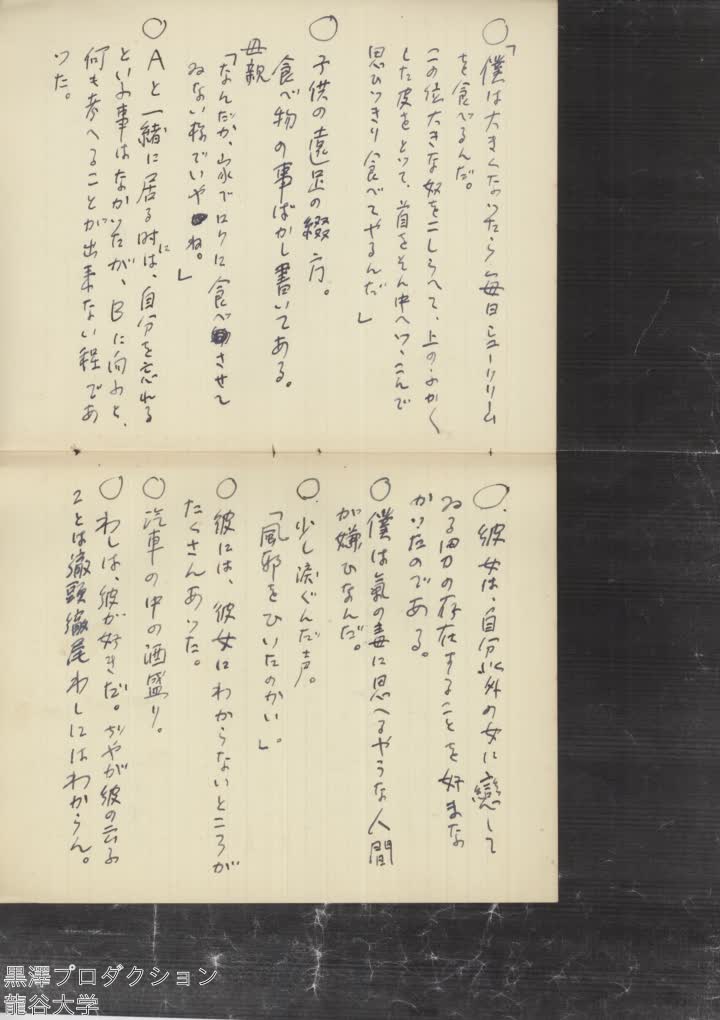 ○「僕は大きくなったら毎日シュークリーム
を食べるんだ。
この位大きな奴をこしらへて、上のふかく
した皮をとって、首をそん中へつっこんで
思ひっきり食べてやるんだ」
○子供の遠足の綴方。
食べ物の事ばかし書いてある。
母親
「なんだか、家でロクに食べさせて
ゐない様でいやね。」
○Aと一緒に居る時には、自分を忘れる
といふ事はなかったが、Bに向ふと、
何も考へることが出来ない程であ
った。
○彼女は、自分以外の女に戀して
ゐる男の存在することを好まな
かったのである。
○僕は氣の毒に思へるやうな人間
が嫌ひなんだ。
○少し涙ぐんだ声。
「風邪をひいたのかい。」
○彼には、彼女にわからないところが
たくさんあった。
○汽車の中の酒盛り。
○わしは、彼が好きだ。ぢやが彼の云ふ
ことは徹頭徹尾わしにはわからん。
黒澤プロダクション
龍谷大学